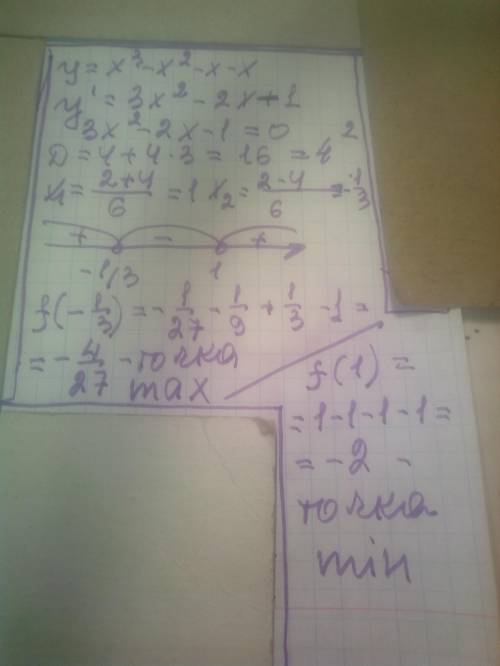 y = x³ - x² - x - x
y' = 3x² - 2x + 1
3x² - 2x - 1 = 0
D = 4 + 4·3 = 16 = 4²
x₁ = (2+4)/6 = 1 x₂ = (2-4)/6 = -1/3
+ - +
-1/3 1
f(-1/3) = -1/27 - 1/9 + 1/3 - 1 =
= -4/27 - точка
max
f(1) =
= 1-1-1-1 =
= -2 -
точка
min